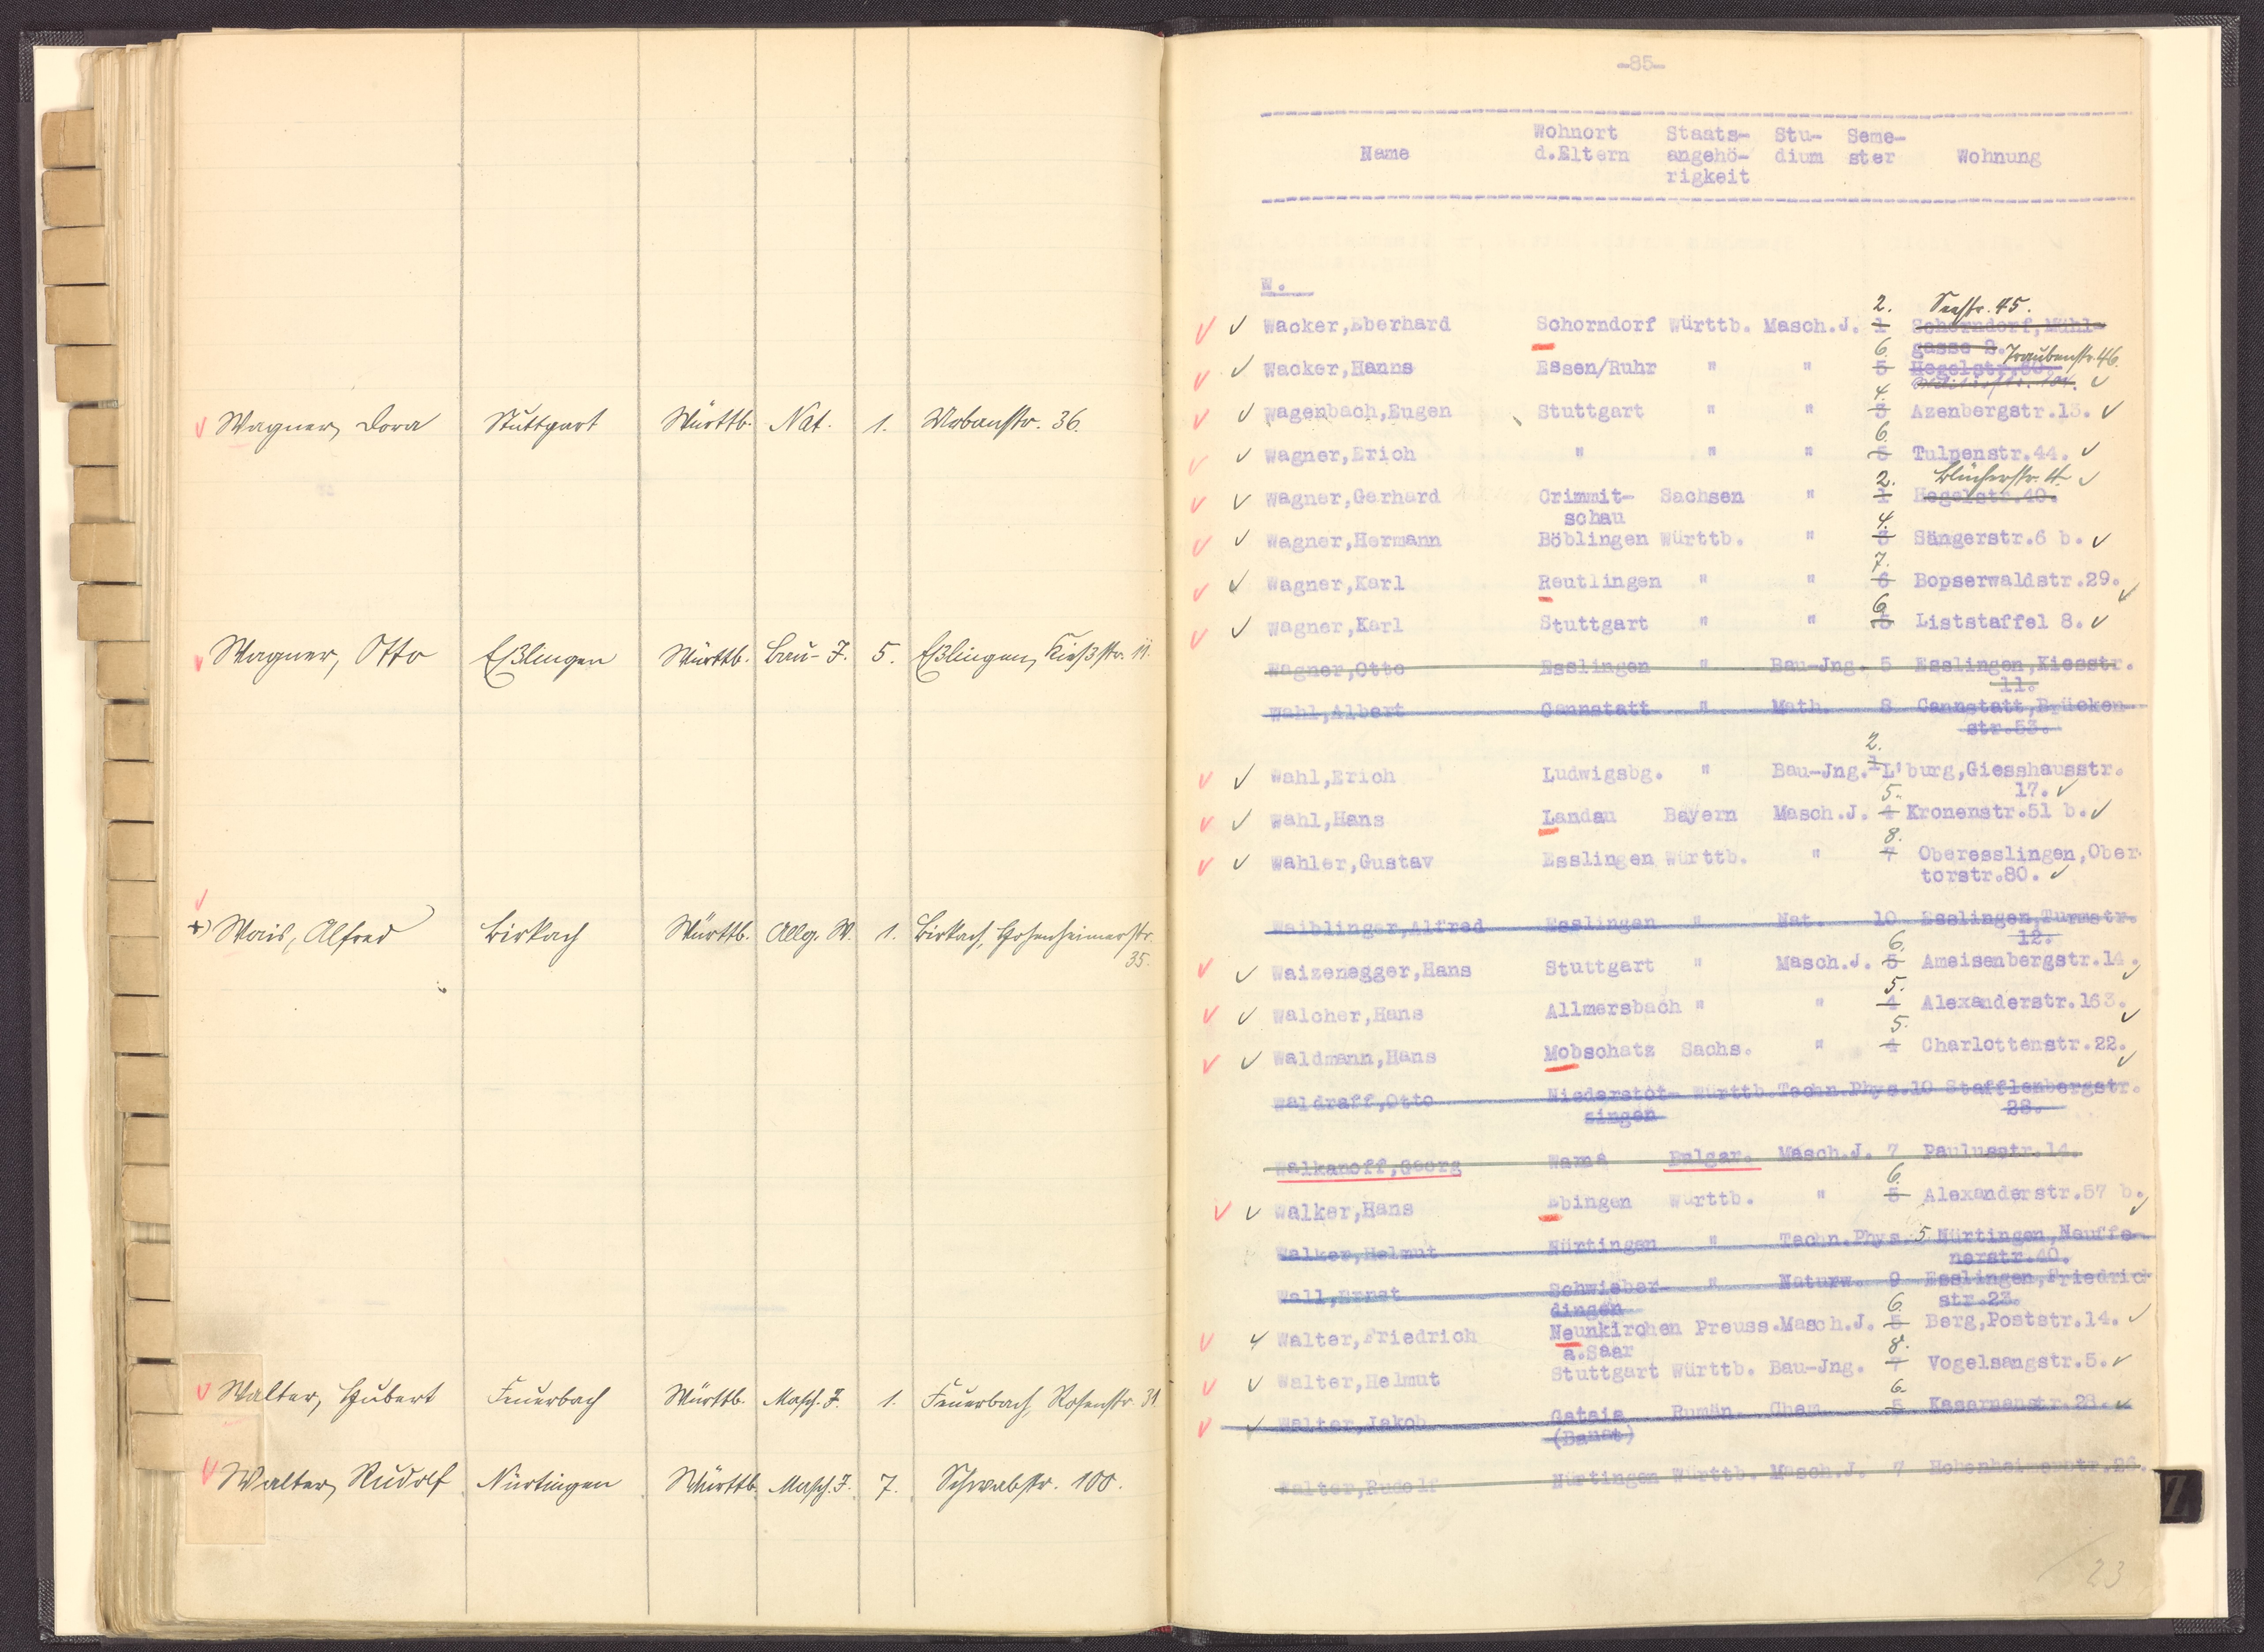 Wagner, Dora Stuttgart Württb. Nat. 1. Urbanstr. 36.
Wagner, Otto Eßlingen Württb. Bau-J. 5. Eßlingen, Kießstr. 11.
+) Wais, Alfred Birkach Württb. Allg. W. 1. Birkach, Hohenheimerstr.
35.
Walter, Hubert Feuerbach Württb. Masch. J. 1. Feuerbach, Rosenstr. 31
Walter, Rudolf Nürtingen Württb. Masch. J. 7. Schwabstr. 100.
-85-
Wohnort Staats- Stu- Seme-
Name d.Eltern angehö- dium ster Wohnung
rigkeit
W.
2. Seestr. 45.
Wacker,Eberhard Schorndorf Württb. Masch.J. 1 Schorndorf,Mühl-
6. gasse 2. Traubenstr. 46.
Wacker,Hanns Essen/Ruhr " " 5 Hegelstr.
4.
Wagenbach,Eugen Stuttgart " " 3 Azenbergstr.13.
6.
Wagner,Erich " " " 5 Tulpenstr.44.
2. Blücherstr. 4.
Wagner,Gerhard Crimmit- Sachsen " 1 Hegelstr.40.
schau 4.
Wagner,Hermann Böblingen Württb. " 3 Sängerstr.6 b.
7.
Wagner,Karl Reutlingen " " 6 Bopserwaldstr.29.
6
Wagner,Karl Stuttgart " " 5 Liststaffel 8.
Wagner,Otto Esslingen " Bau-Jng. 5 Esslingen,Kiesstr.
11.
Wahl,Albert Cannstatt " Math. 8 Cannstatt,Brücken-
str.53.
2.
Wahl,Erich Ludwigsbg. " Bau-Jng. 1 L'burg,Giesshausstr.
5. 17.
Wahl,Hans Landau Bayern Masch.J. 4 Kronenstr.51 b.
8.
Wahler,Gustav Esslingen Württb. " 7 Oberesslingen,Ober-
torstr.80.
Waiblinger,Alfred Esslingen " Nat. 10 Esslingen,Turmstr.
6. 12.
Waizenegger,Hans Stuttgart " Masch.J. 5 Ameisenbergstr.14.
5.
Walcher,Hans Allmersbach " " 4 Alexanderstr.163.
5.
Waldmann,Hans Mobschatz Sachs. " 4 Charlottenstr.22.
Waldraff,Otto Niederstot- Württb. Techn.Phys. 10 Stafflenbergstr.
singen 28.
Walkanoff,Georg Warna Bulgar. Masch.J. 7 Paulusstr.14.
6.
Walker,Hans Ebingen Württb. " 5 Alexanderstr.57 b.
Walker,Helmut Nürtingen " Techn.Phys. 5 Nürtingen,Neuffe-
nerstr.40.
Wall,Ernst Schwieber- " Naturw. 9 Esslingen,Friedrich
dingen 6. str.23.
Walter,Friedrich Neunkirchen Preuss. Masch.J. 5 Berg,Poststr.14.
a.Saar 8.
Walter,Helmut Stuttgart Württb. Bau-Jng. 7 Vogelsangstr.5.
6.
Walter,Jakob Gataia Rumän. Chem. 5 Kasernenstr.28.
(Banat)
Walter,Rudolf Nürtingen Württb. Masch.J. 7 Hohenheimerstr.26.
23
Z